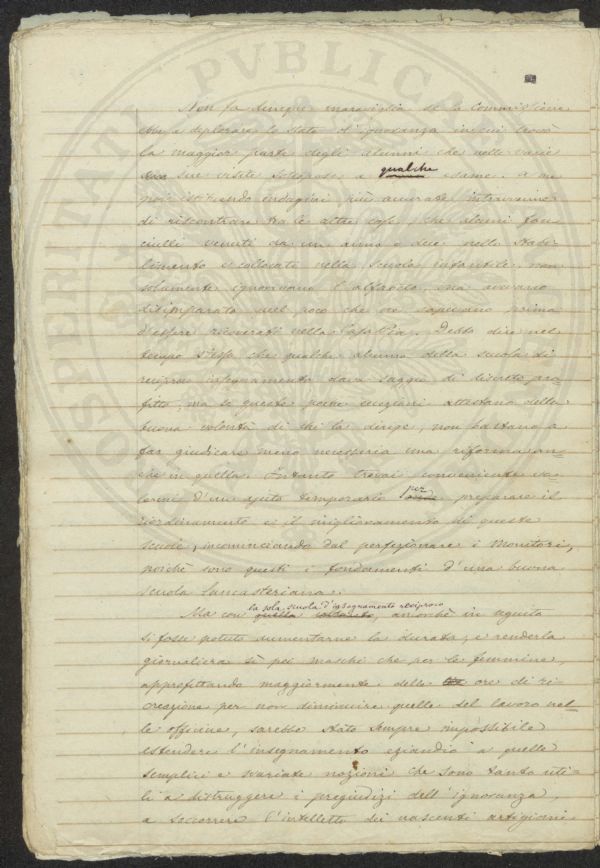 Non fa dunque maraviglia se la Commissione
ebbe a deplorare lo stato d'ignoranza in cui trovò
la maggior parte degli alunni che nelle varie
sue visite sottopose a qualche esame. a me
poi istituendo indagini più accurate intravvenne
di riscontrare tra le altre cose, che alcuni fan-
ciulli venuti da un anno o due nello Stabi-
limento e collocati nella scuola infantile non
solamente ignoravano l'alfabeto, ma avevano
disimparato quel poco che ne sapevano prima
d'essere ricoverati nella Casa Pia. Debbo dire nel
tempo stesso che qualche alunno della scuola di
reciproco insegnamento dava saggio di discreto pro-
fitto, ma se queste poche eccezioni attestano della
buona volontà di chi la dirige, non bastano a
far giudicare meno necessaria una riforma an-
che in quella. Intanto trovai conveniente va-
lermi d'un ajuto temporario per preparare il
riordinamento ed il miglioramento di queste
scuole, incominciando dal perfezionare i Monitori,
poichè sono questi i fondamenti d'una buona
scuola Lancasteriana.
Ma con la sola scuola d'insegnamento reciproco, ancorchè in seguito
si fosse potuto aumentarne la durata, e renderla
giornaliera sì pei maschi che per le femmine,
approfittando maggiormente delle ore di ri-
creazione per non diminuire quelle del lavoro nel-
le officine, sarebbe stato sempre impossibile
estendere l'insegnamento eziandio a quelle
semplici e svariate nozioni che sono tanto uti-
li a distruggere i pregiudizi dell'ignoranza,
a soccorrere l'intelletto dei nascenti artigiani
PROSPERITATI PVBLICAE